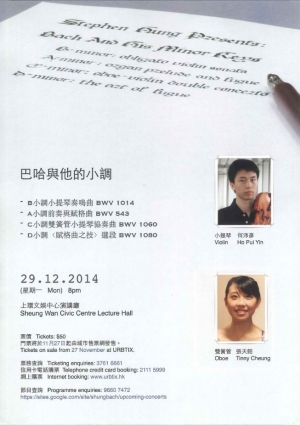 Stephen Hung Presents:
Bach And His Minor Keys
B-minor: obligato violin sonata
A-minor: organ prelude and fugue
C-minor: oboe-violin double concerto
D-minor: the art of fugue
巴哈與他的小調
- B小調小提琴奏鳴曲 BWV 1014
- A小調前奏與賦格曲 BWV 543
- C小調雙簧管小提琴協奏曲 BWV 1060
- D小調《賦格曲之技》選段 BWV 1080
小提琴 何沛彥
Violin Ho Pui Yin
29.12.2014
(星期一 Mon) 8pm
上環文娛中心演講廳
Sheung Wan Civic Centre Lecture Hall
票價 Tickets: $50
門票將於11月27日起在城市售票網發售。
Tickets on sale from 27 November at URBTIX.
票務查詢 Ticketing enquiries: 3761 6661
信用卡電話購票 Telephone credit card booking: 2111 5999
網上購票 Internet booking: www.urbtix.hk
節目查詢 Programme enquiries: 9660 7472
https://sites.google.com/site/shungbach/upcoming-concerts
雙簧管 張天妮
Oboe Tinny Cheung